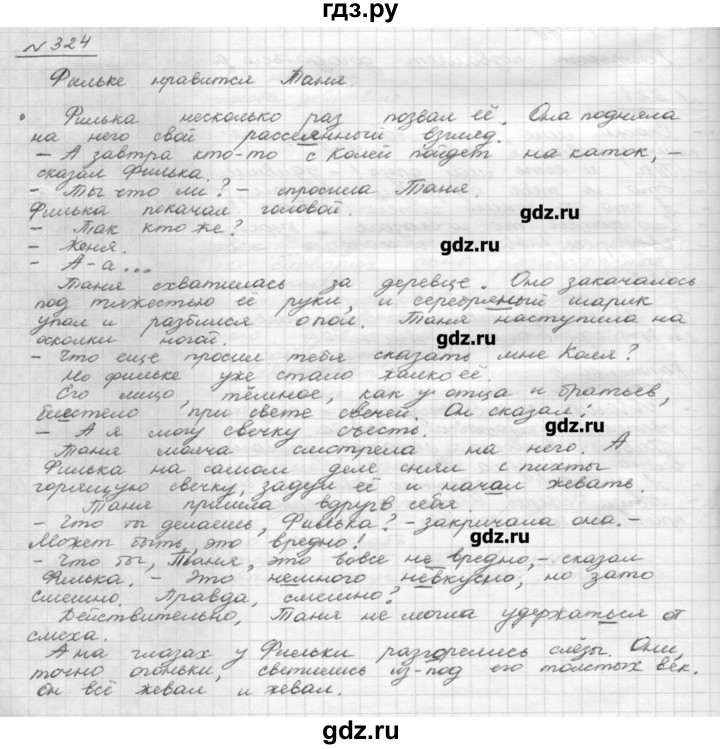 гдз.ру
N 324
Фильке нравится Таня.
Филька несколько раз позвал её. Она подняла
на него свой рассеянный взгляд.
– А завтра кто-то с Колей пойдёт на каток, –
сказал Филька.
– Ты что ли? – спросила Таня.
Филька покачал головой.
gdz.ru
– Так кто же?
– Женя.
gdz.ru
– А-а...
Таня схватилась за деревце. Оно закачалось
под тяжестью её руки, и серебряный шарик
упал и разбился о пол. Таня наступила на
осколки ногой.
gdz.ru
– Что еще просил тебя сказать мне Коля?
Но Фильке уже стало жалко её.
Его лицо, тёмное, как у отца и братьев,
блестело при свете свечей. Он сказал:
– А я могу свечку съесть.
gdz.ru
Таня молча смотрела на него. А
Филька на самом деле снял с пихты
горящую свечку, задул её и начал жевать.
Таня пришла вдруг в себя.
– Что ты делаешь, Филька? – закричала она. –
Может быть, это вредно!
– Что ты, Таня, это вовсе не вредно, – сказал
Филька. – Это немного невкусно, но зато
смешно. Правда, смешно?
Действительно, Таня не могла удержаться от
смеха.
А на глазах у Фильки разгорелись слёзы. Они,
точно огоньки, светились из-под его толстых век.
Он всё жевал и жевал.
gdz.ru